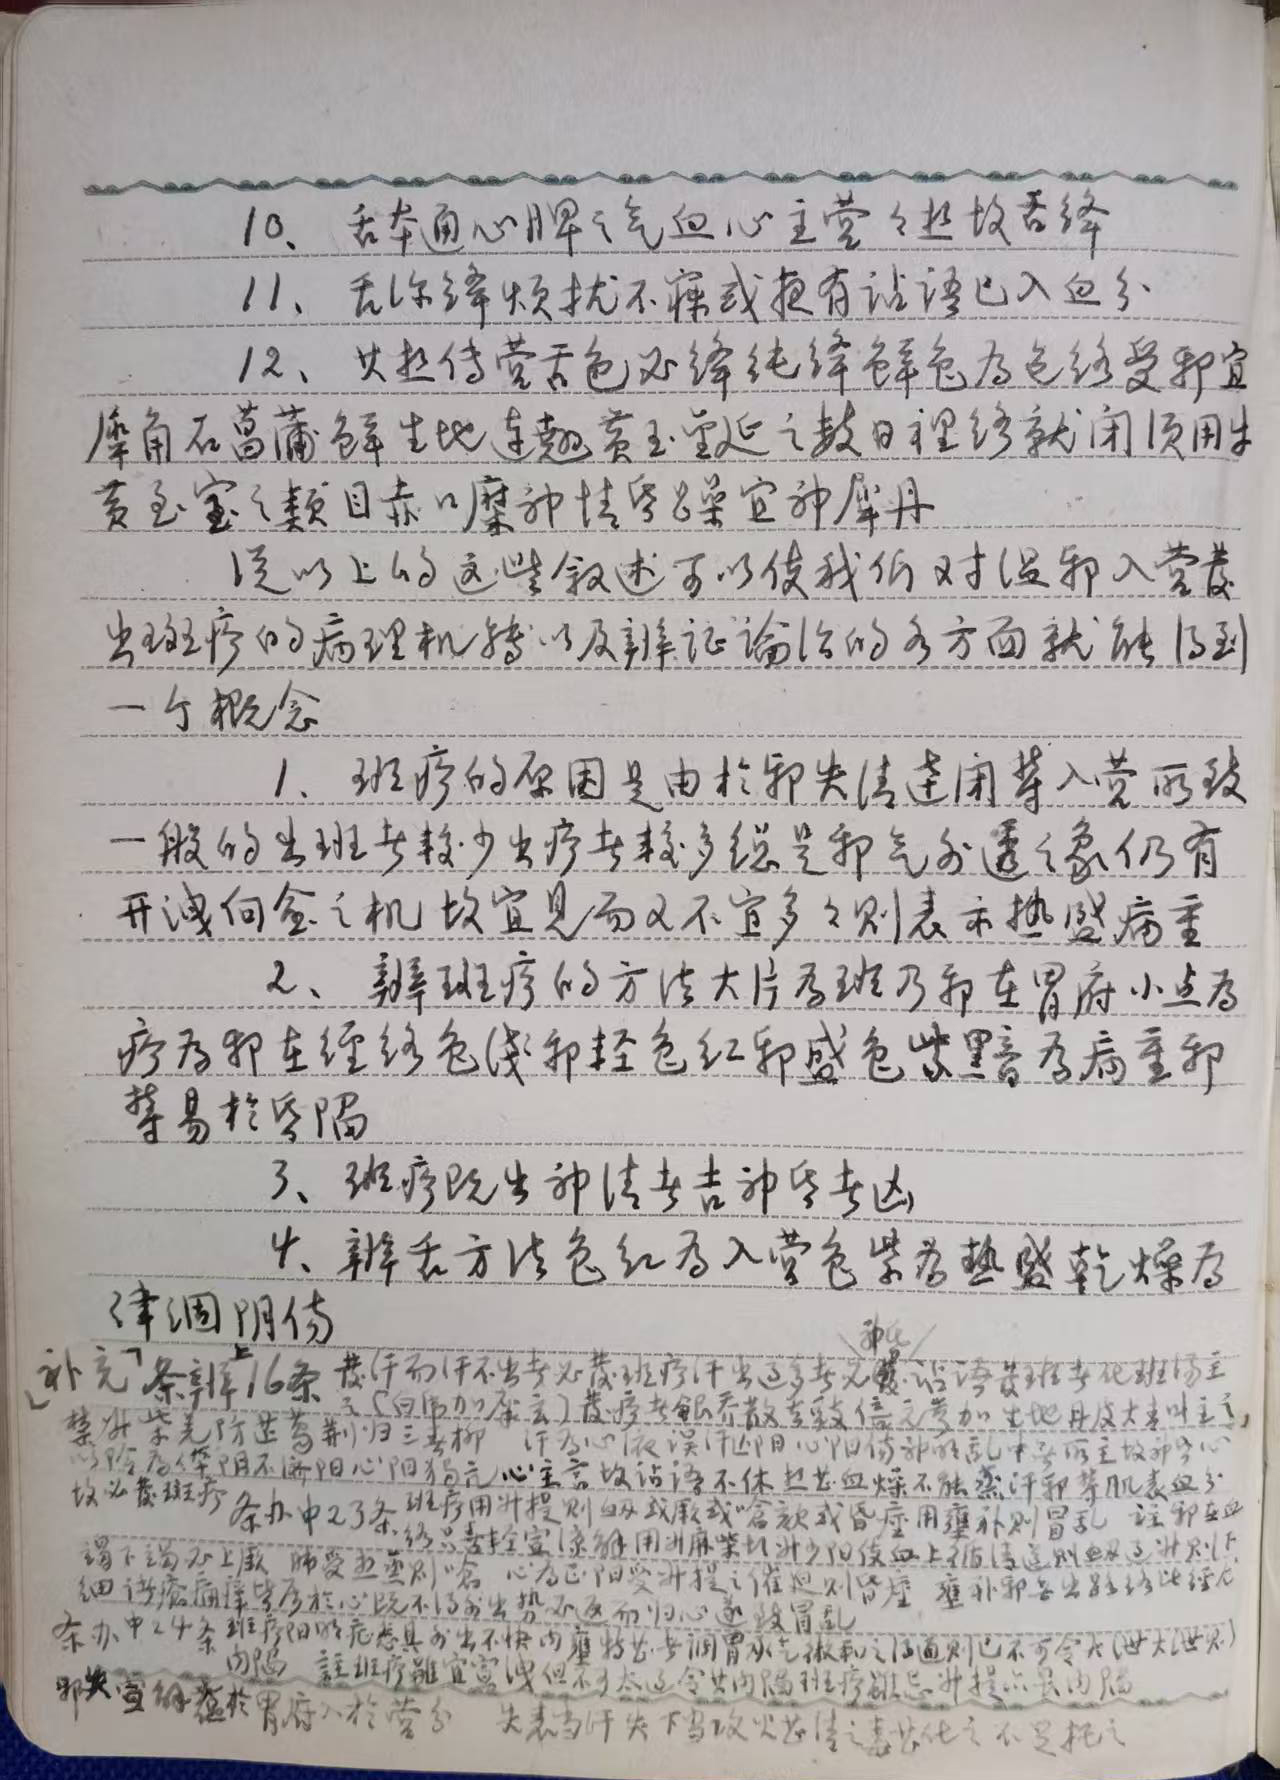 10、舌本通心脾之气血心主营々热故舌绛
11、舌深绛烦扰不寐或夜有谵语已入血分
12、其热传营舌色必绛纯绛鲜色为包络受邪宜
犀角石菖蒲鲜生地连翘黄玉金延之数日裡络就闭须用牛
黄至宝之类目赤口糜神情昏躁宜神犀丹
从以上的这些叙述可以使我们对温邪入营发
出斑疹的病理机转以及辨证论治的各方面就能得到
一个概念
1、斑疹的原因是由於邪失清达闭郁入营所致
一般的出斑者较少出疹者较多总是邪气外透之象仍有
开洩向愈之机故宜见而又不宜多々则表示热盛病重
2、辨斑疹的方法大片为斑乃邪在胃府小点为
疹为邪在经络色浅邪轻色红邪盛色紫黑暗为病重邪
郁易於昏陷
3、斑疹既出神清者吉神昏者凶
4、辨舌方法色红为入营色紫为热盛乾燥为
津涸阴伤
神昏
「补充」条辨上16条 发汗而汗不出者必发斑疹汗出过多者必发谵语发斑者化斑汤主
之〔白虎加犀玄〕发疹者银乔散去豉倍元参加生地丹皮大青叶主之
禁升柴羌防葛荆归三春柳 汗为心液误汗心阳伤神明乱中无所主故神昏心
阴不济阳心阳独亢心主言故谵语不休热甚血燥不能蒸汗邪郁肌表血分
故必发斑疹 条办中23条 斑疹用升提则衄或厥或呛咳或昏痉用壅补则瞀乱 註邪在血
络只喜轻宣凉解用升麻柴胡升少阳使血上循清道则衄过升则下
竭下竭必上厥 肺受热蒸则呛 心为正阳受升提之催迫则昏痉 壅补邪无出路络比经尤
细诸疮痛痒皆属於心既不得外出势必返而归心遂致瞀乱
条办中24条 斑疹阳明症悉具外出不快内壅特甚者调胃承气微和之得通则已不可令大泄大泄则
内陷 註斑疹虽宜宣洩但不可太过令其内陷斑疹虽忌升提亦畏内陷
邪失宣解蕴於胃府入於营分 失表当汗失下当攻火甚清之毒甚化之不足托之